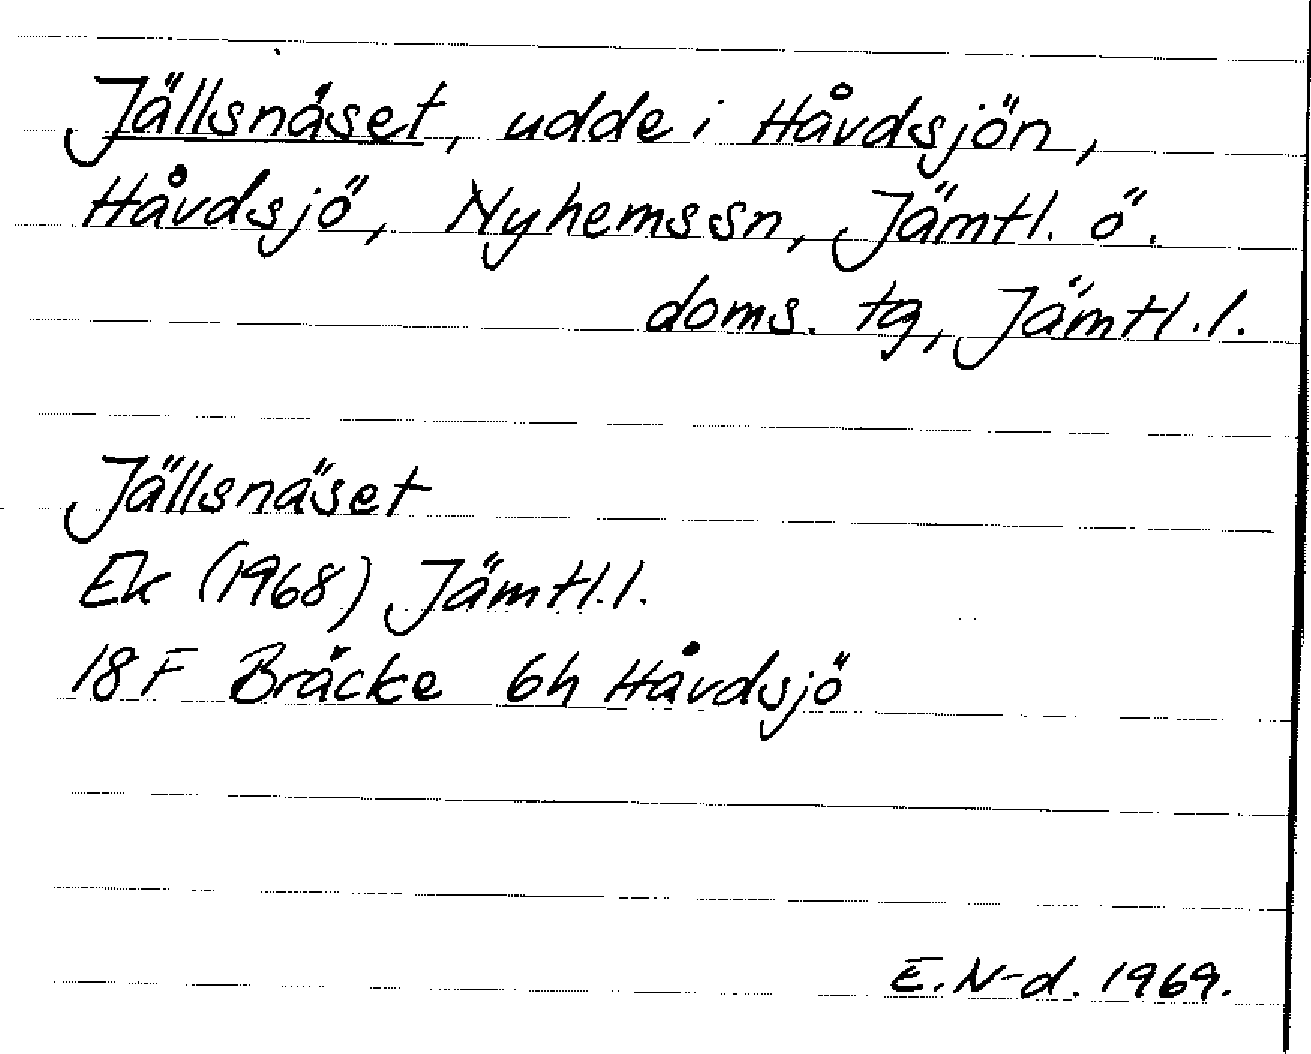 Jällsnäset, udde i Håvdsjön,
Håvdsjö, Nyhemssn, Jämtl. ö.
doms. tg, Jämtl.l.
Jällsnäset
Ek (1968) Jämtl.l.
18 F Bräcke 6h Håvdsjö
E. N-d. 1969.